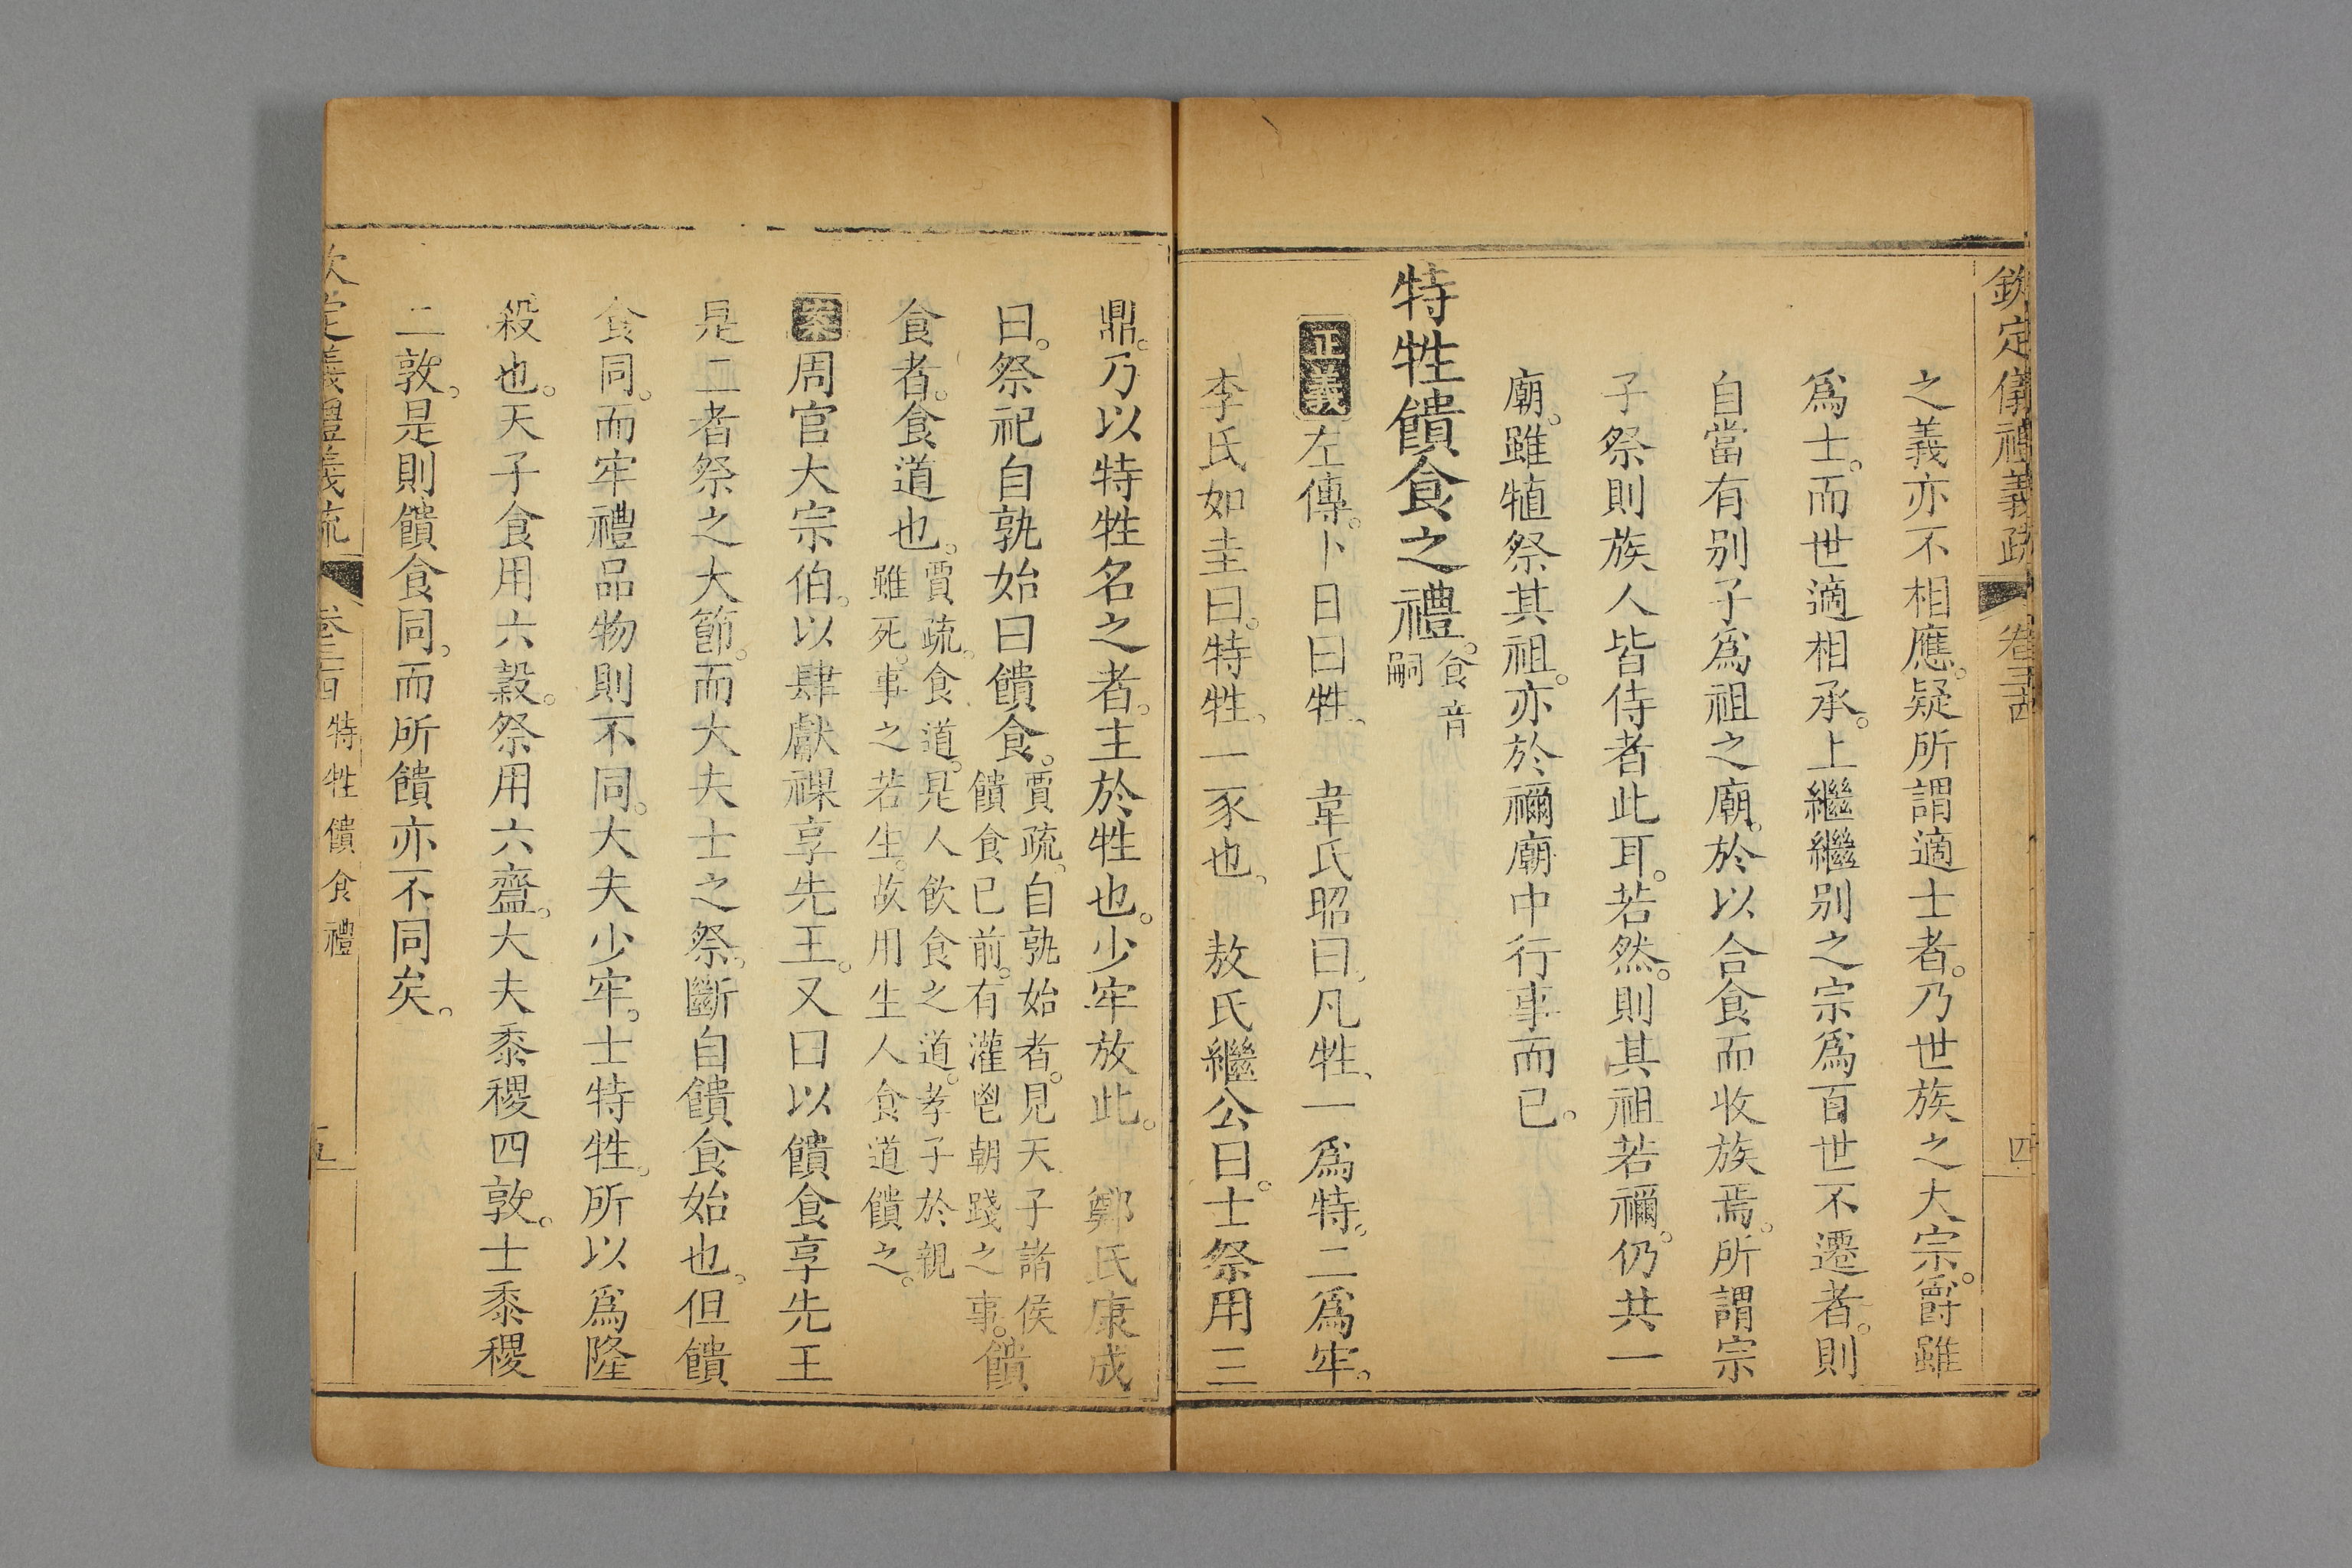 欽定儀禮義疏 卷三十四 四
之義亦不相應。疑所謂適士者。乃世族之大宗。爵雖
爲士。而世適相承。上繼繼别之宗爲百世不遷者。則
自當有别子爲祖之廟。於以合食而收族焉。所謂宗
子祭則族人皆侍者此耳。若然。則其祖若禰。仍共一
廟。雖犆祭其祖。亦於禰廟中行事而已。
特牲饋食之禮。食音嗣
正義左傳。卜日曰牲、 韋氏昭曰、凡牲、一爲特。二爲牢。
李氏如圭曰。特牲、一豕也、 敖氏繼公曰。士祭用三
鼎。乃以特牲名之者。主於牲也。少牢放此。 鄭氏康成
曰。祭祀自孰始曰饋食。賈疏。自孰始者。見天子諸侯饋食已前。有灌鬯朝踐之事。饋
食者。食道也。賈疏。食道。是人飲食之道。孝子於親雖死。事之若生。故用生人食道饋之。
案周官大宗伯。以肆獻祼享先王。又曰以饋食享先王
是二者祭之大節。而大夫士之祭。斷自饋食始也。但饋
食同。而牢禮品物則不同。大夫少牢。士特牲。所以爲隆
殺也。天子食用六穀。祭用六齍。大夫黍稷四敦。士黍稷
二敦。是則饋食同。而所饋亦不同矣。
欽定義禮義疏 卷三十四 特牲饋食禮 五